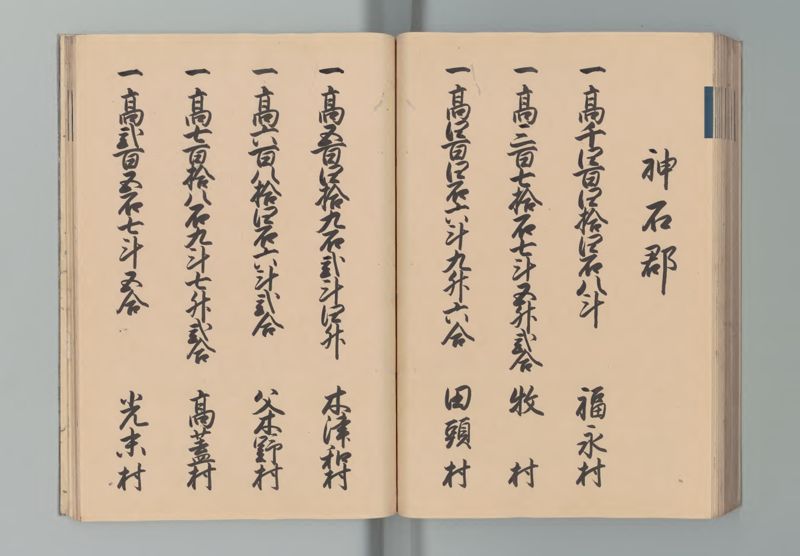 神石郡
一高千四百四拾四石八斗 福永村
一高二百七拾石七斗五升弐合 牧村
一高四百四石六斗九升六合 田頭村
一高五百四拾九石弐斗四升 木津和村
一高六百八拾四石六斗弐合 父木野村
一高七百拾八石九斗七升弐合 高蓋村
一高弐百五石七斗五合 光末村